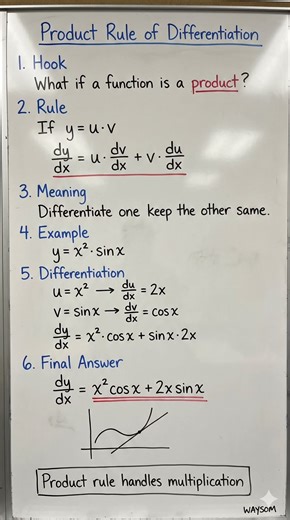 Product Rule of Differentiation
1. Hook
What if a function is a product?
2. Rule
If y = u · v
dy/dx = u · dv/dx + v · du/dx
3. Meaning
Differentiate one keep the other same.
4. Example
y = x² · sin x
5. Differentiation
u = x² → du/dx = 2x
v = sin x → dv/dx = cos x
dy/dx = x² · cos x + sin x · 2x
6. Final Answer
dy/dx = x² cos x + 2x sin x
Product rule handles multiplication
WAYSOM